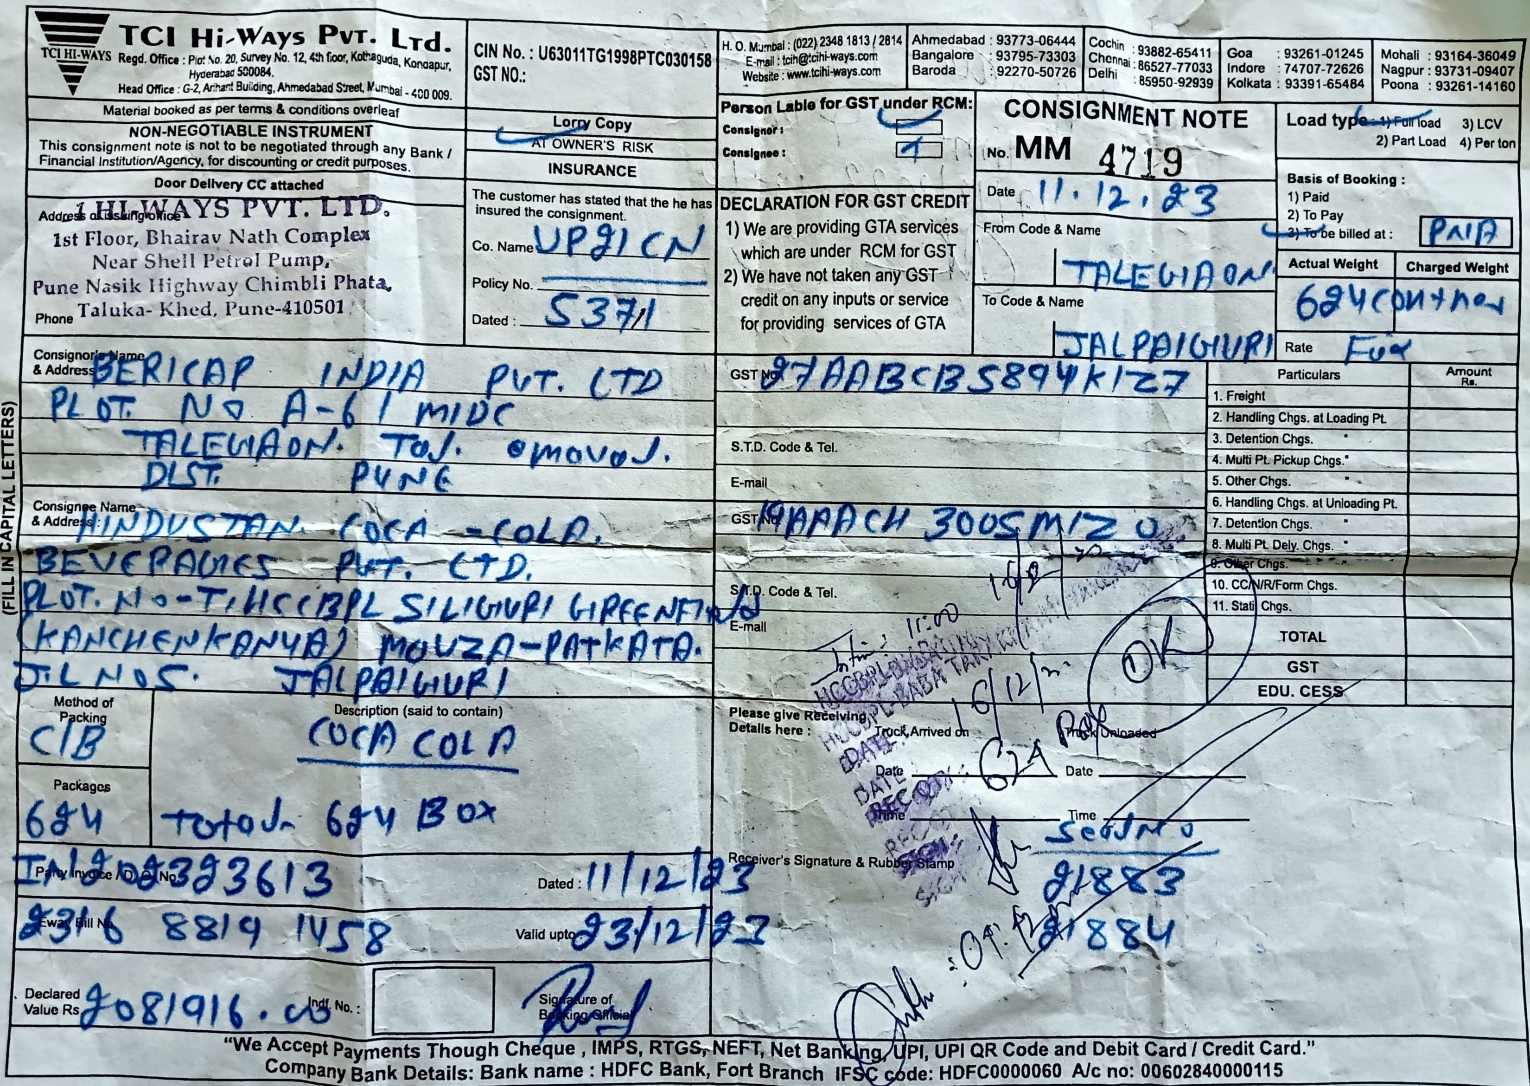 TCI Hi-Ways Pvt. Ltd.
TCI HI-WAYS
Regd. Office : Plot No. 20, Survey No. 12, 4th floor, Kothaguda, Kondapur,
Hyderabad 500084.
Head Office : G-2, Arihant Building, Ahmedabad Street, Mumbai - 400 009.
CIN No. : U63011TG1998PTC030158
GST NO.:
H. O. Mumbai : (022) 2348 1813 / 2814
E-mail : tcih@tcihi-ways.com
Website : www.tcihi-ways.com
Ahmedabad : 93773-06444
Bangalore : 93795-73303
Baroda : 92270-50726
Cochin : 93882-65411
Chennai : 86527-77033
Delhi : 85950-92939
Goa : 93261-01245
Indore : 74707-72626
Kolkata : 93391-65484
Mohali : 93164-36049
Nagpur : 93731-09407
Poona : 93261-14160
Material booked as per terms & conditions overleaf
NON-NEGOTIABLE INSTRUMENT
This consignment note is not to be negotiated through any Bank /
Financial Institution/Agency, for discounting or credit purposes.
Door Delivery CC attached
Address of issuing office
HI-WAYS PVT. LTD.
1st Floor, Bhairav Nath Complex
Near Shell Petrol Pump,
Pune Nasik Highway Chimbli Phata,
Taluka- Khed, Pune-410501
Phone
Lorry Copy
AT OWNER'S RISK
INSURANCE
The customer has stated that the he has
insured the consignment.
Co. Name UP21CN
Policy No.
Dated : 5371
Person Lable for GST under RCM:
Consignor :
Consignee :
DECLARATION FOR GST CREDIT
1) We are providing GTA services
which are under RCM for GST
2) We have not taken any GST
credit on any inputs or service
for providing services of GTA
CONSIGNMENT NOTE
No. MM 4719
Date 11.12.23
From Code & Name
TALEGAON
To Code & Name
JALPAIGURI
Load type : 1) Full load 3) LCV
2) Part Load 4) Per ton
Basis of Booking :
1) Paid
2) To Pay
3) To be billed at :
Actual Weight
Charged Weight
624
Rate Fix
(FILL IN CAPITAL LETTERS)
Consignor's Name
& Address
BERICAP INDIA PVT. LTD
PLOT. NO A-6 / MIDC
TALEGAON.
DIST. PUNE
GST No. 27AABCB5894K1Z7
S.T.D. Code & Tel.
E-mail
Consignee Name
& Address :
HINDUSTAN COCA-COLA.
BEVERAGES PVT. LTD.
PLOT. NO-1, HCCBPL SILIGURI GREENFIELD
(KANCHENKANYA) MOUZA-PATKATA.
J.L NO5. JALPAIGURI
GST No. 19AAACH3005M1ZU
S.T.D. Code & Tel.
E-mail
Particulars
Amount Rs.
1. Freight
2. Handling Chgs. at Loading Pt.
3. Detention Chgs. "
4. Multi Pt. Pickup Chgs."
5. Other Chgs.
6. Handling Chgs. at Unloading Pt.
7. Detention Chgs. "
8. Multi Pt. Dely. Chgs. "
9. Other Chgs.
10. CC/N/R/Form Chgs.
11. Stati. Chgs.
TOTAL
GST
EDU. CESS
Method of
Packing
C/B
Description (said to contain)
COCA COLA
Packages
624
Total 624 BOX
Party Invoice / D.O. No.
IN1202323613
Dated : 11/12/23
Eway Bill No.
2316 8819 1458
Valid upto 23/12/23
Declared
Value Rs. 2081916.00
Indf. No. :
Signature of
Booking Official
11:00
OK
Please give Receiving
Details here :
Truck Arrived on
16/12/2
Truck Unloaded
Date
624
Date
Time
Time
DATE
Receiver's Signature & Rubber Stamp
Seal No
21883
21884
"We Accept Payments Though Cheque , IMPS, RTGS, NEFT, Net Banking, UPI, UPI QR Code and Debit Card / Credit Card."
Company Bank Details: Bank name : HDFC Bank, Fort Branch IFSC code: HDFC0000060 A/c no: 00602840000115